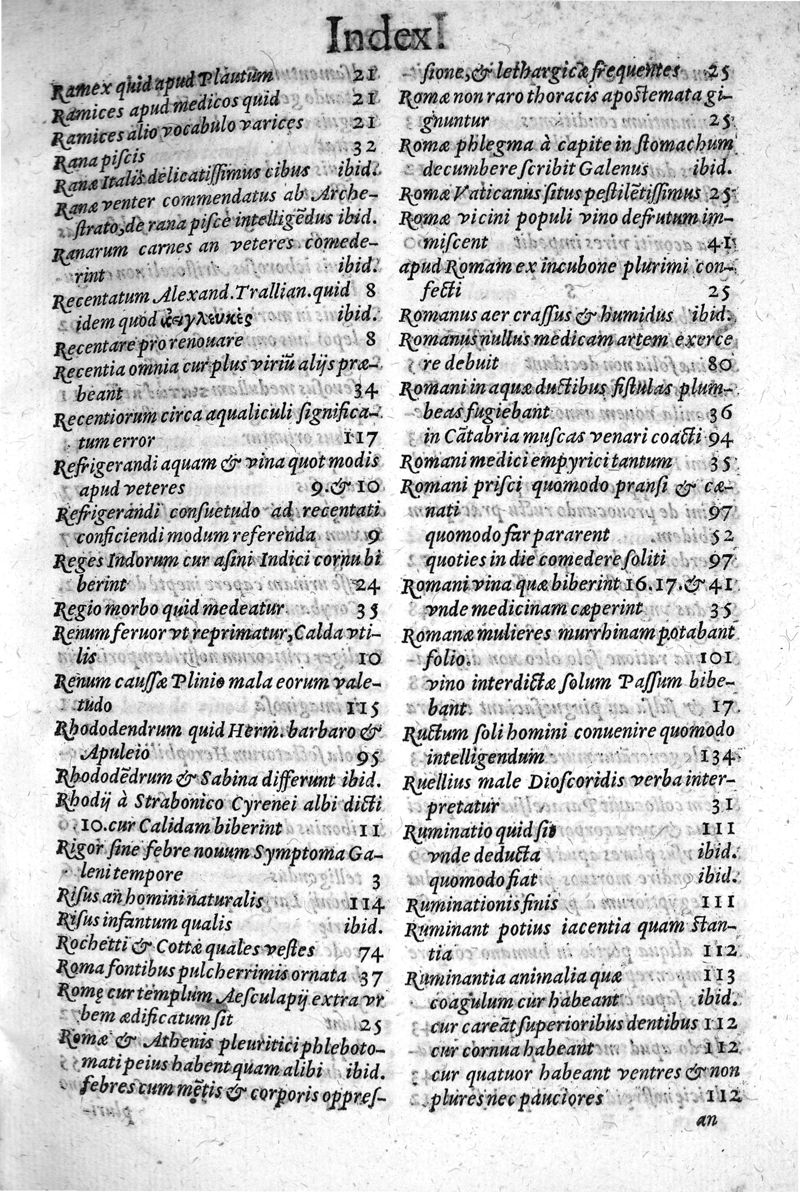 Index
Ramex quid apud Plautum 21
Ramices apud medicos quid 21
Ramices alio vocabulo varices 21
Rana piscis 32
Ranæ Italis delicatissimus cibus ibid.
Ranæ venter commendatus ab Arche-
strato, de rana pisce intelligẽdus ibid.
Ranarum carnes an veteres comede-
rint ibid.
Recentatum Alexand. Trallian. quid 8
idem quod ἀειγλευκὲς ibid.
Recentare pro renouare 8
Recentia omnia cur plus viriũ alijs præ-
beant 34
Recentiorum circa aqualiculi significa-
tum error 117
Refrigerandi aquam & vina quot modis
apud veteres 9. & 10
Refrigerandi consuetudo ad recentati
conficiendi modum referenda 9
Reges Indorum cur asini Indici cornu bi
berint 24
Regio morbo quid medeatur 35
Renum feruor vt reprimatur, Calda vti-
lis 10
Renum caussæ Plinio mala eorum vale-
tudo 115
Rhododendrum quid Herm. barbaro &
Apuleio 95
Rhododẽdrum & Sabina differunt ibid.
Rhodij à Strabonico Cyrenei albi dicti
10. cur Calidam biberint 11
Rigor sine febre nouum Symptoma Ga-
leni tempore 3
Risus an homini naturalis 114
Risus infantum qualis ibid.
Rochetti & Cottæ quales vestes 74
Roma fontibus pulcherrimis ornata 37
Romę cur templum Aesculapij extra vr
bem ædificatum sit 25
Romæ & Athenis pleuritici phleboto-
mati peius habent quam alibi ibid.
febres cum mẽtis & corporis oppres-
sione, & lethargicæ frequentes 25
Romæ non raro thoracis apostemata gi-
gnuntur 25
Romæ phlegma à capite in stomachum
decumbere scribit Galenus ibid.
Romæ Vaticanus situs pestilẽtissimus 25
Romæ vicini populi vino defrutum im-
miscent 41
apud Romam ex incubone plurimi con-
fecti 25
Romanus aer crassus & humidus ibid.
Romanus nullus medicam artem exerce
re debuit 80
Romani in aquæ ductibus fistulas plum-
beas fugiebant 36
in Cãtabria muscas venari coacti 94
Romani medici empyrici tantum 35
Romani prisci quomodo pransi & cæ-
nati 97
quomodo far pararent 52
quoties in die comedere soliti 97
Romani vina quæ biberint 16. 17. & 41
vnde medicinam cæperint 35
Romanæ mulieres murrhinam potabant
folio. 101
vino interdictæ solum Passum bibe-
bant 17
Ructum soli homini conuenire quomodo
intelligendum 134
Ruellius male Dioscoridis verba inter-
pretatur 31
Ruminatio quid sit 111
vnde deducta ibid.
quomodo fiat ibid.
Ruminationis finis 111
Ruminant potius iacentia quam stan-
tia 112
Ruminantia animalia quæ 113
coagulum cur habeant ibid.
cur careãt superioribus dentibus 112
cur cornua habeant 112
cur quatuor habeant ventres & non
plures nec pauciores 112
an